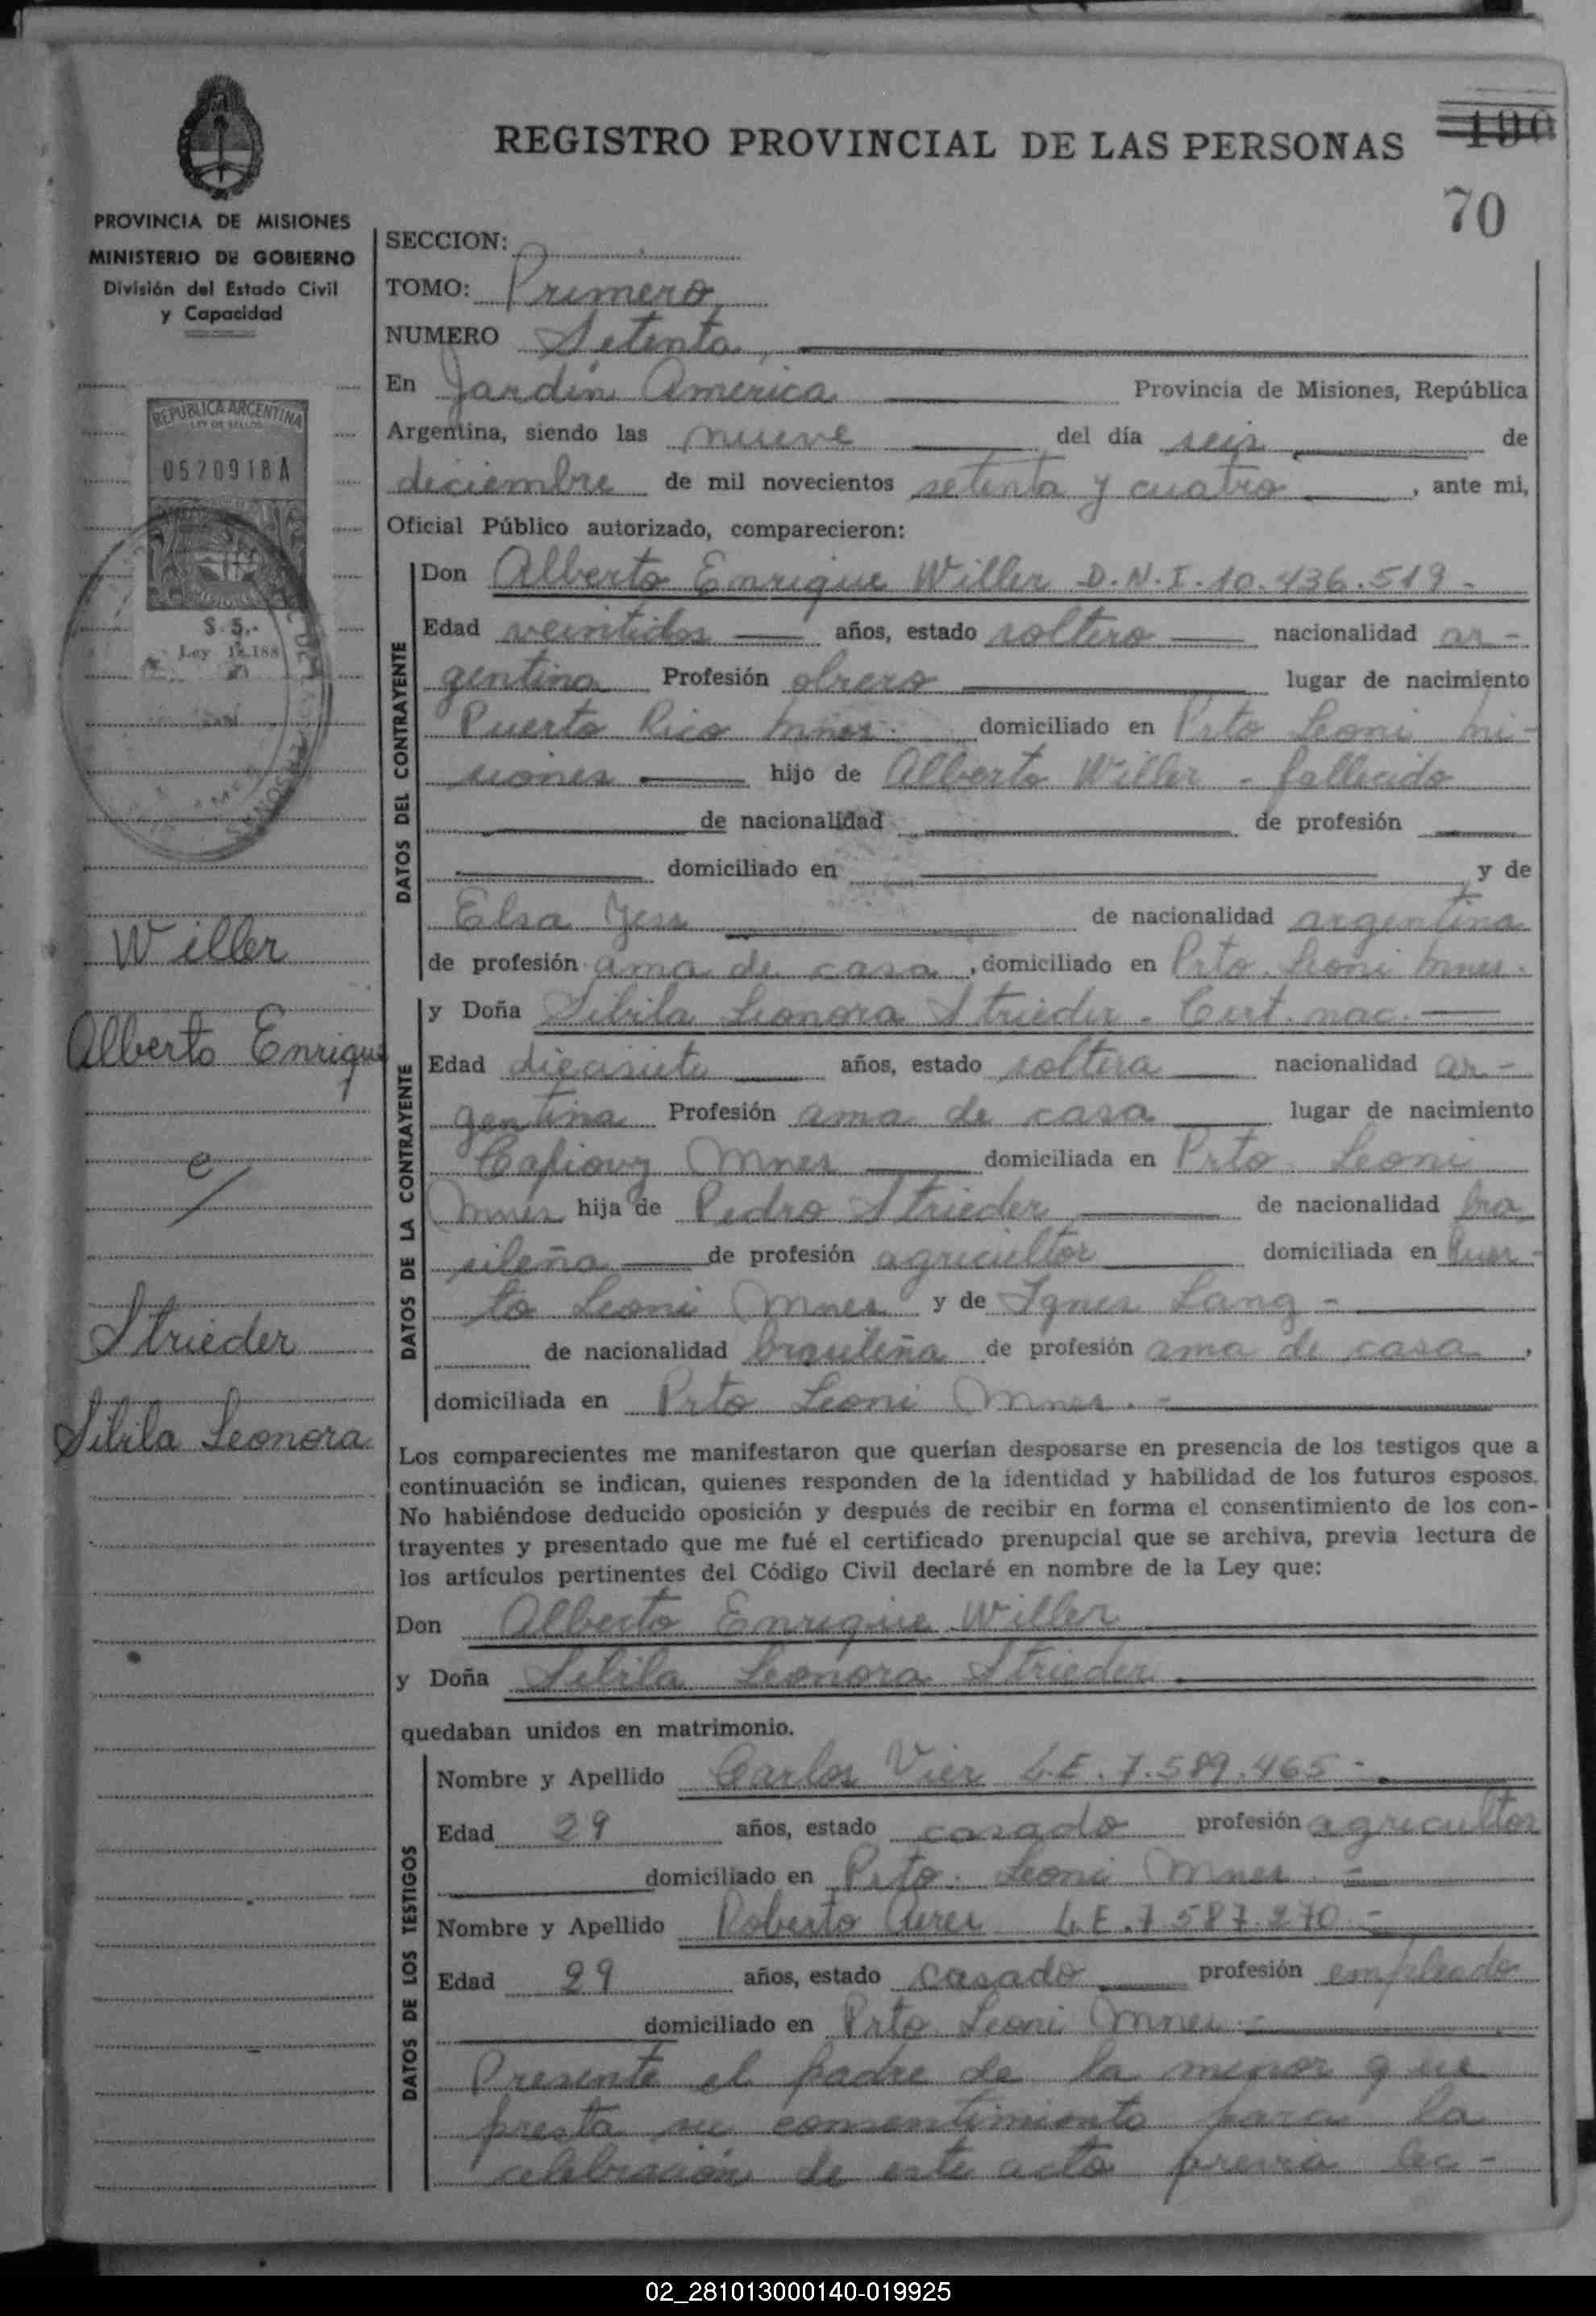 REGISTRO PROVINCIAL DE LAS PERSONAS
190
70
PROVINCIA DE MISIONES
MINISTERIO DE GOBIERNO
División del Estado Civil
y Capacidad
REPUBLICA ARGENTINA
LEY DE SELLOS
0520918A
$ 5.-
Ley 18.188
Willer
Alberto Enrique
c/
Strieder
Sibila Leonora
SECCION:
TOMO: Primero
NUMERO Setenta
En Jardín America Provincia de Misiones, República
Argentina, siendo las nueve del día seis de
diciembre de mil novecientos setenta y cuatro, ante mi,
Oficial Público autorizado, comparecieron:
DATOS DEL CONTRAYENTE
Don Alberto Enrique Willer D.N.I. 10.436.519-
Edad veintidos años, estado soltero nacionalidad ar-
gentina Profesión obrero lugar de nacimiento
Puerto Rico Mnes. domiciliado en Prto Leoni Mi-
siones hijo de Alberto Willer - fallecido
de nacionalidad de profesión
domiciliado en y de
Elsa Jess de nacionalidad argentina
de profesión ama de casa, domiciliado en Prto. Leoni Mnes.
DATOS DE LA CONTRAYENTE
y Doña Sibila Leonora Strieder - Cert. nac.
Edad diecisiete años, estado soltera nacionalidad ar-
gentina Profesión ama de casa lugar de nacimiento
Capiovy Mnes domiciliada en Prto. Leoni
Mnes hija de Pedro Strieder de nacionalidad bra
sileña de profesión agricultor domiciliada en Puer-
to Leoni Mnes y de Ignes Lang -
de nacionalidad brasileña de profesión ama de casa,
domiciliada en Prto Leoni Mnes. -
Los comparecientes me manifestaron que querían desposarse en presencia de los testigos que a
continuación se indican, quienes responden de la identidad y habilidad de los futuros esposos.
No habiéndose deducido oposición y después de recibir en forma el consentimiento de los con-
trayentes y presentado que me fué el certificado prenupcial que se archiva, previa lectura de
los artículos pertinentes del Código Civil declaré en nombre de la Ley que:
Don Alberto Enrique Willer
y Doña Sibila Leonora Strieder
quedaban unidos en matrimonio.
DATOS DE LOS TESTIGOS
Nombre y Apellido Carlos Vier L.E. 7.589.465 -
Edad 29 años, estado casado profesión agricultor
domiciliado en Prto. Leoni Mnes -
Nombre y Apellido Roberto L.E. 7.587.270 -
Edad 29 años, estado casado profesión empleado
domiciliado en Prto. Leoni Mnes -
Presente el padre de la menor que
presta su consentimiento para la
celebración de este acto previa lec-
02_281013000140-019925